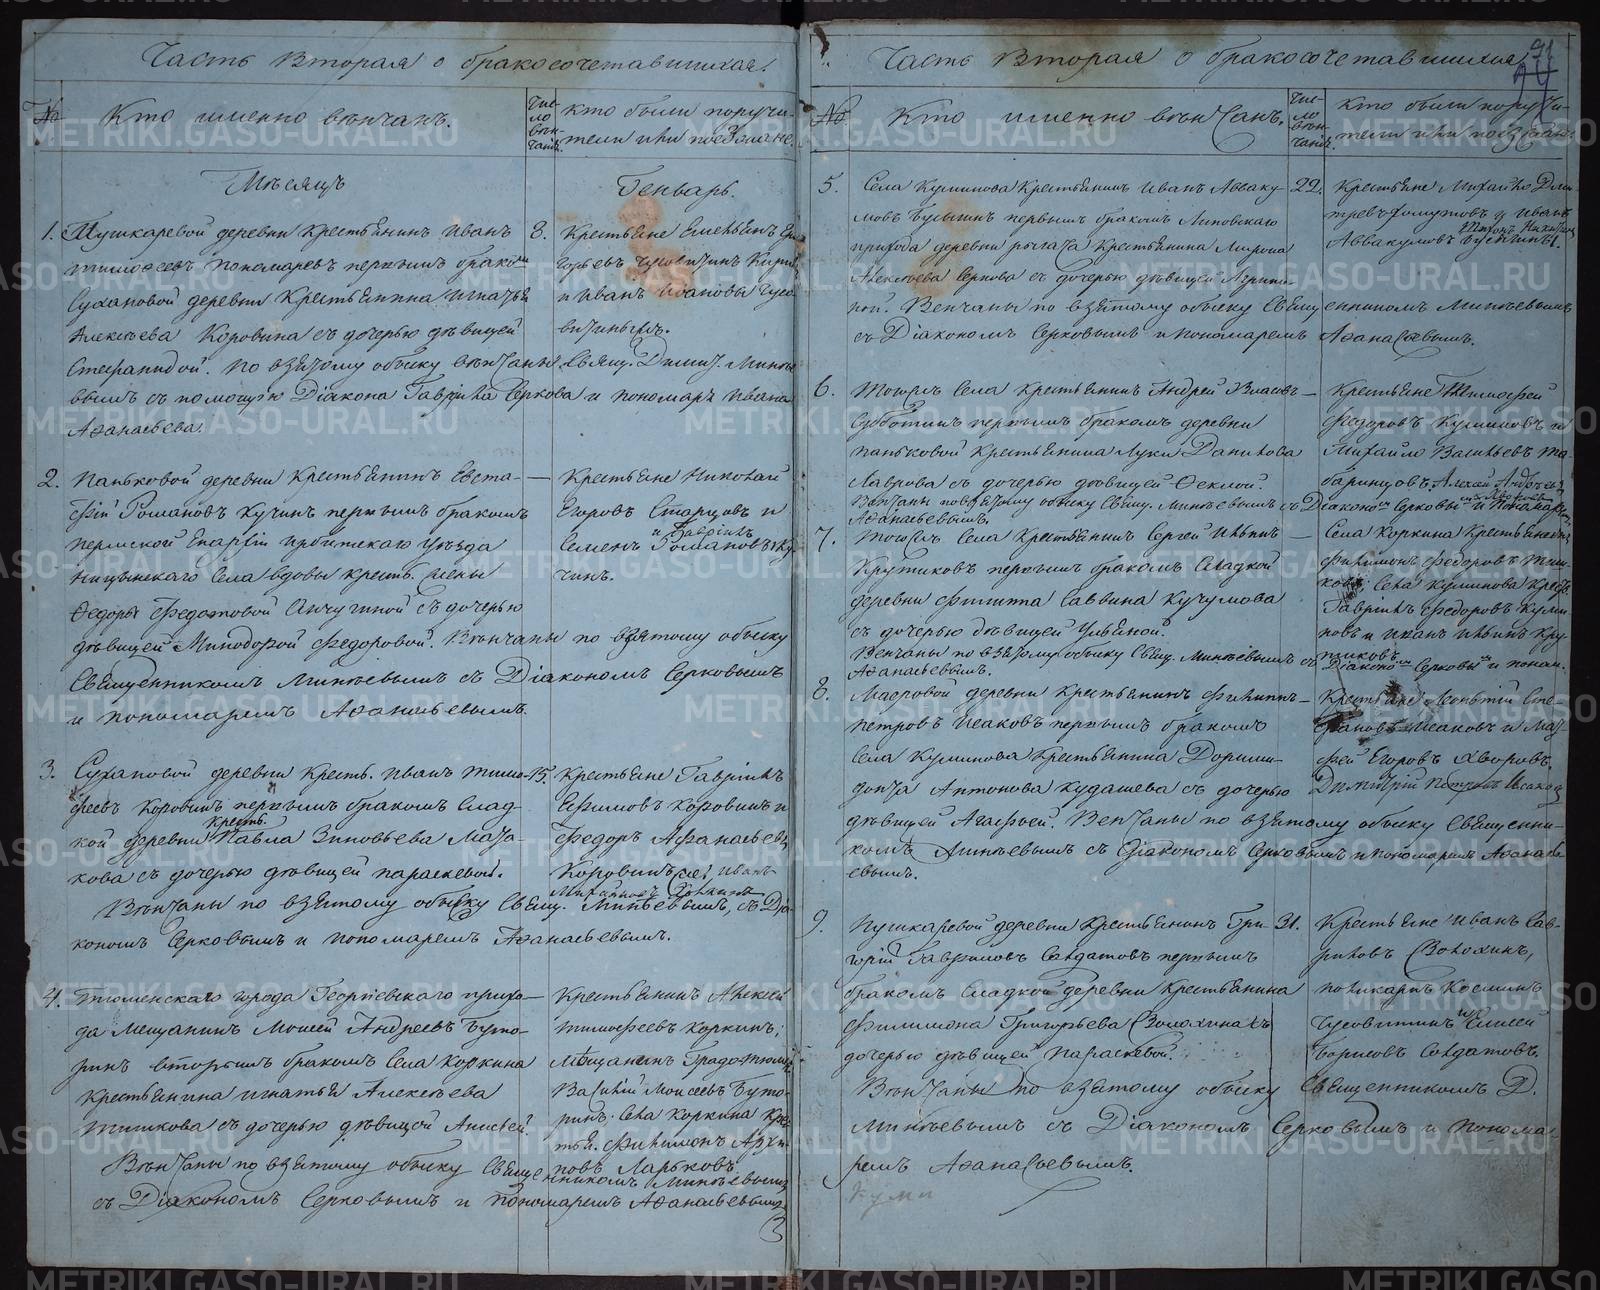 Часть Вторая о бракосочетавшихся.
№
Кто именно вѣнчанъ.
Число вѣнчанія.
Кто были поручители или поѣзжане.
Мѣсяцъ
Генварь.
1. Пушкаревой деревни крестьянинъ Иванъ
Тимофеевъ Пономаревъ первымъ бракомъ
Сухановой деревни крестьянина Игнатья
Алексѣева Коровина съ дочерью дѣвицей
Степанидой. По взятому обыску вѣнчаны Свящ. Димит. Минѣе
вымъ съ помощію Діакона Гавріила Серкова и пономаря Ивана
Аѳанасьева.
8. Крестьяне Емельянъ Гри
горьевъ Чусовитинъ Кирил
и Иванъ Ивановы Чусо
витины.
2. Паньковой деревни крестьянинъ Евста-
фій Романовъ Кучинъ первымъ бракомъ
Пермской Епархіи Ирбитскаго уѣзда
Ницынскаго села вдовы крестьян. жены
Ѳедоры Федотовой Анчугиной съ дочерью
дѣвицей Минодорой Федоровой. Вѣнчаны по взятому обыску
Священникомъ Минѣевымъ съ Діакономъ Серковымъ
и пономаремъ Аѳанасьевымъ.
— Крестьяне Николай
Егоровъ Старцовъ и
Семенъ и Гаврилъ Романовъ Ку
чинъ.
3. Сухановой деревни крестьян. Иванъ Тимо-
феевъ Коровинъ первымъ бракомъ Слад-
кой деревни крестьян. Павла Зиновьева Маза-
кова съ дочерью дѣвицей Параскевой.
Вѣнчаны по взятому обыску Свящ. Минѣевымъ, съ Діа-
кономъ Серковымъ и пономаремъ Аѳанасьевымъ.
15. Крестьяне Гавріилъ
Ефимовъ Коровинъ и
Федоръ Афанасьевъ
Коровинъ, Иванъ
Михайловъ
4. Тюменскаго города Георгіевскаго прихо-
да мещанинъ Моисей Андреевъ Буто-
ринъ вторымъ бракомъ села Коркина
крестьянина Игнатья Алексѣева
Тишкова съ дочерью дѣвицей Анисьей.
Вѣнчаны по взятому обыску Священникомъ Минѣевымъ
съ Діакономъ Серковымъ и пономаремъ Аѳанасьевымъ
Крестьянинъ Алексей
Тимофеевъ Коркинъ;
Мѣщанинъ Града Тюмени
Василій Моисеевъ Буто-
ринъ; села Коркина крес
тьян. Филимонъ Архи
повъ Ларьковъ.
Часть Вторая о бракосочетавшихся.
91
№
Кто именно вѣнчанъ.
Число вѣнчанія.
Кто были поручители или поѣзжане.
5. Села Куминова крестьянинъ Иванъ Авваку-
мовъ Бусыгинъ первымъ бракомъ Липовскаго
прихода деревни Рычага крестьянина Мирона
Алексѣева Серкова съ дочерью дѣвицей Агрипи-
ной. Венчаны по взятому обыску Священникомъ Минѣевымъ
съ Діакономъ Серковымъ и пономаремъ Аѳанасьевымъ.
22. Крестьяне Михайло Дми
тревъ Хомутовъ и Иванъ
Аввакумовъ Бусыгины.
6. Тогожъ села крестьянинъ Андрей Власовъ
Субботинъ первымъ бракомъ деревни
Паньковой крестьянина Луки Данилова
Лаврова съ дочерью дѣвицей Ѳеклой.
Венчаны по взятому обыску Свящ. Минѣевымъ съ Діакономъ Серковы и пономар
Аѳанасьевымъ.
— Крестьяне Тимофей
Федоровъ Куминовъ и
Михайло Васильевъ Та
баринцовъ. Алексей Андреевъ
7. Тогожъ села крестьянинъ Сергей Ильинъ
Крутиковъ первымъ бракомъ Сладкой
деревни Филипа Саввина Кучумова
съ дочерью дѣвицей Ульяной.
Венчаны по взятому обыску Свящ. Минѣевымъ съ Діаконо Серковы и понам.
Аѳанасьевымъ.
— Села Коркина крестьянинъ
Филимонъ Федоровъ Тиш
ковъ; села Куминова Крест.
Гаврилъ Федоровъ Куми
новъ и Иванъ Ильинъ Кру
тиковъ
8. Мавровой деревни крестьянинъ Филиппъ
Петровъ Исаковъ первымъ бракомъ
села Куминова крестьянина Дорими-
донта Антонова Кудашева съ дочерью
дѣвицей Агафьей. Венчаны по взятому обыску Священни-
комъ Минѣевымъ съ Діакономъ Серковымъ и пономаремъ Аѳанась
евымъ.
— Крестьяне Леонтій Сте
пановъ Исаковъ и Мат
фей Егоровъ Хворовъ.
Димитрій Петровъ Исаков
9. Пушкаревой деревни крестьянинъ Гри-
горій Гавриловъ Солдатовъ первымъ
бракомъ Сладкой деревни крестьянина
Филимона Григорьева Волохина съ
дочерью дѣвицей Параскевой.
Вѣнчаны по взятому обыску Священникомъ Д.
Минѣевымъ съ Діакономъ Серковымъ и понома-
ремъ Аѳанасьевымъ.
31. Крестьяне Иванъ Гав-
риловъ Волохинъ,
Поликарпъ Косминъ
Чусовитинъ и Елисей
Борисовъ Солдатовъ.
METRIKI.GASO-URAL.RU